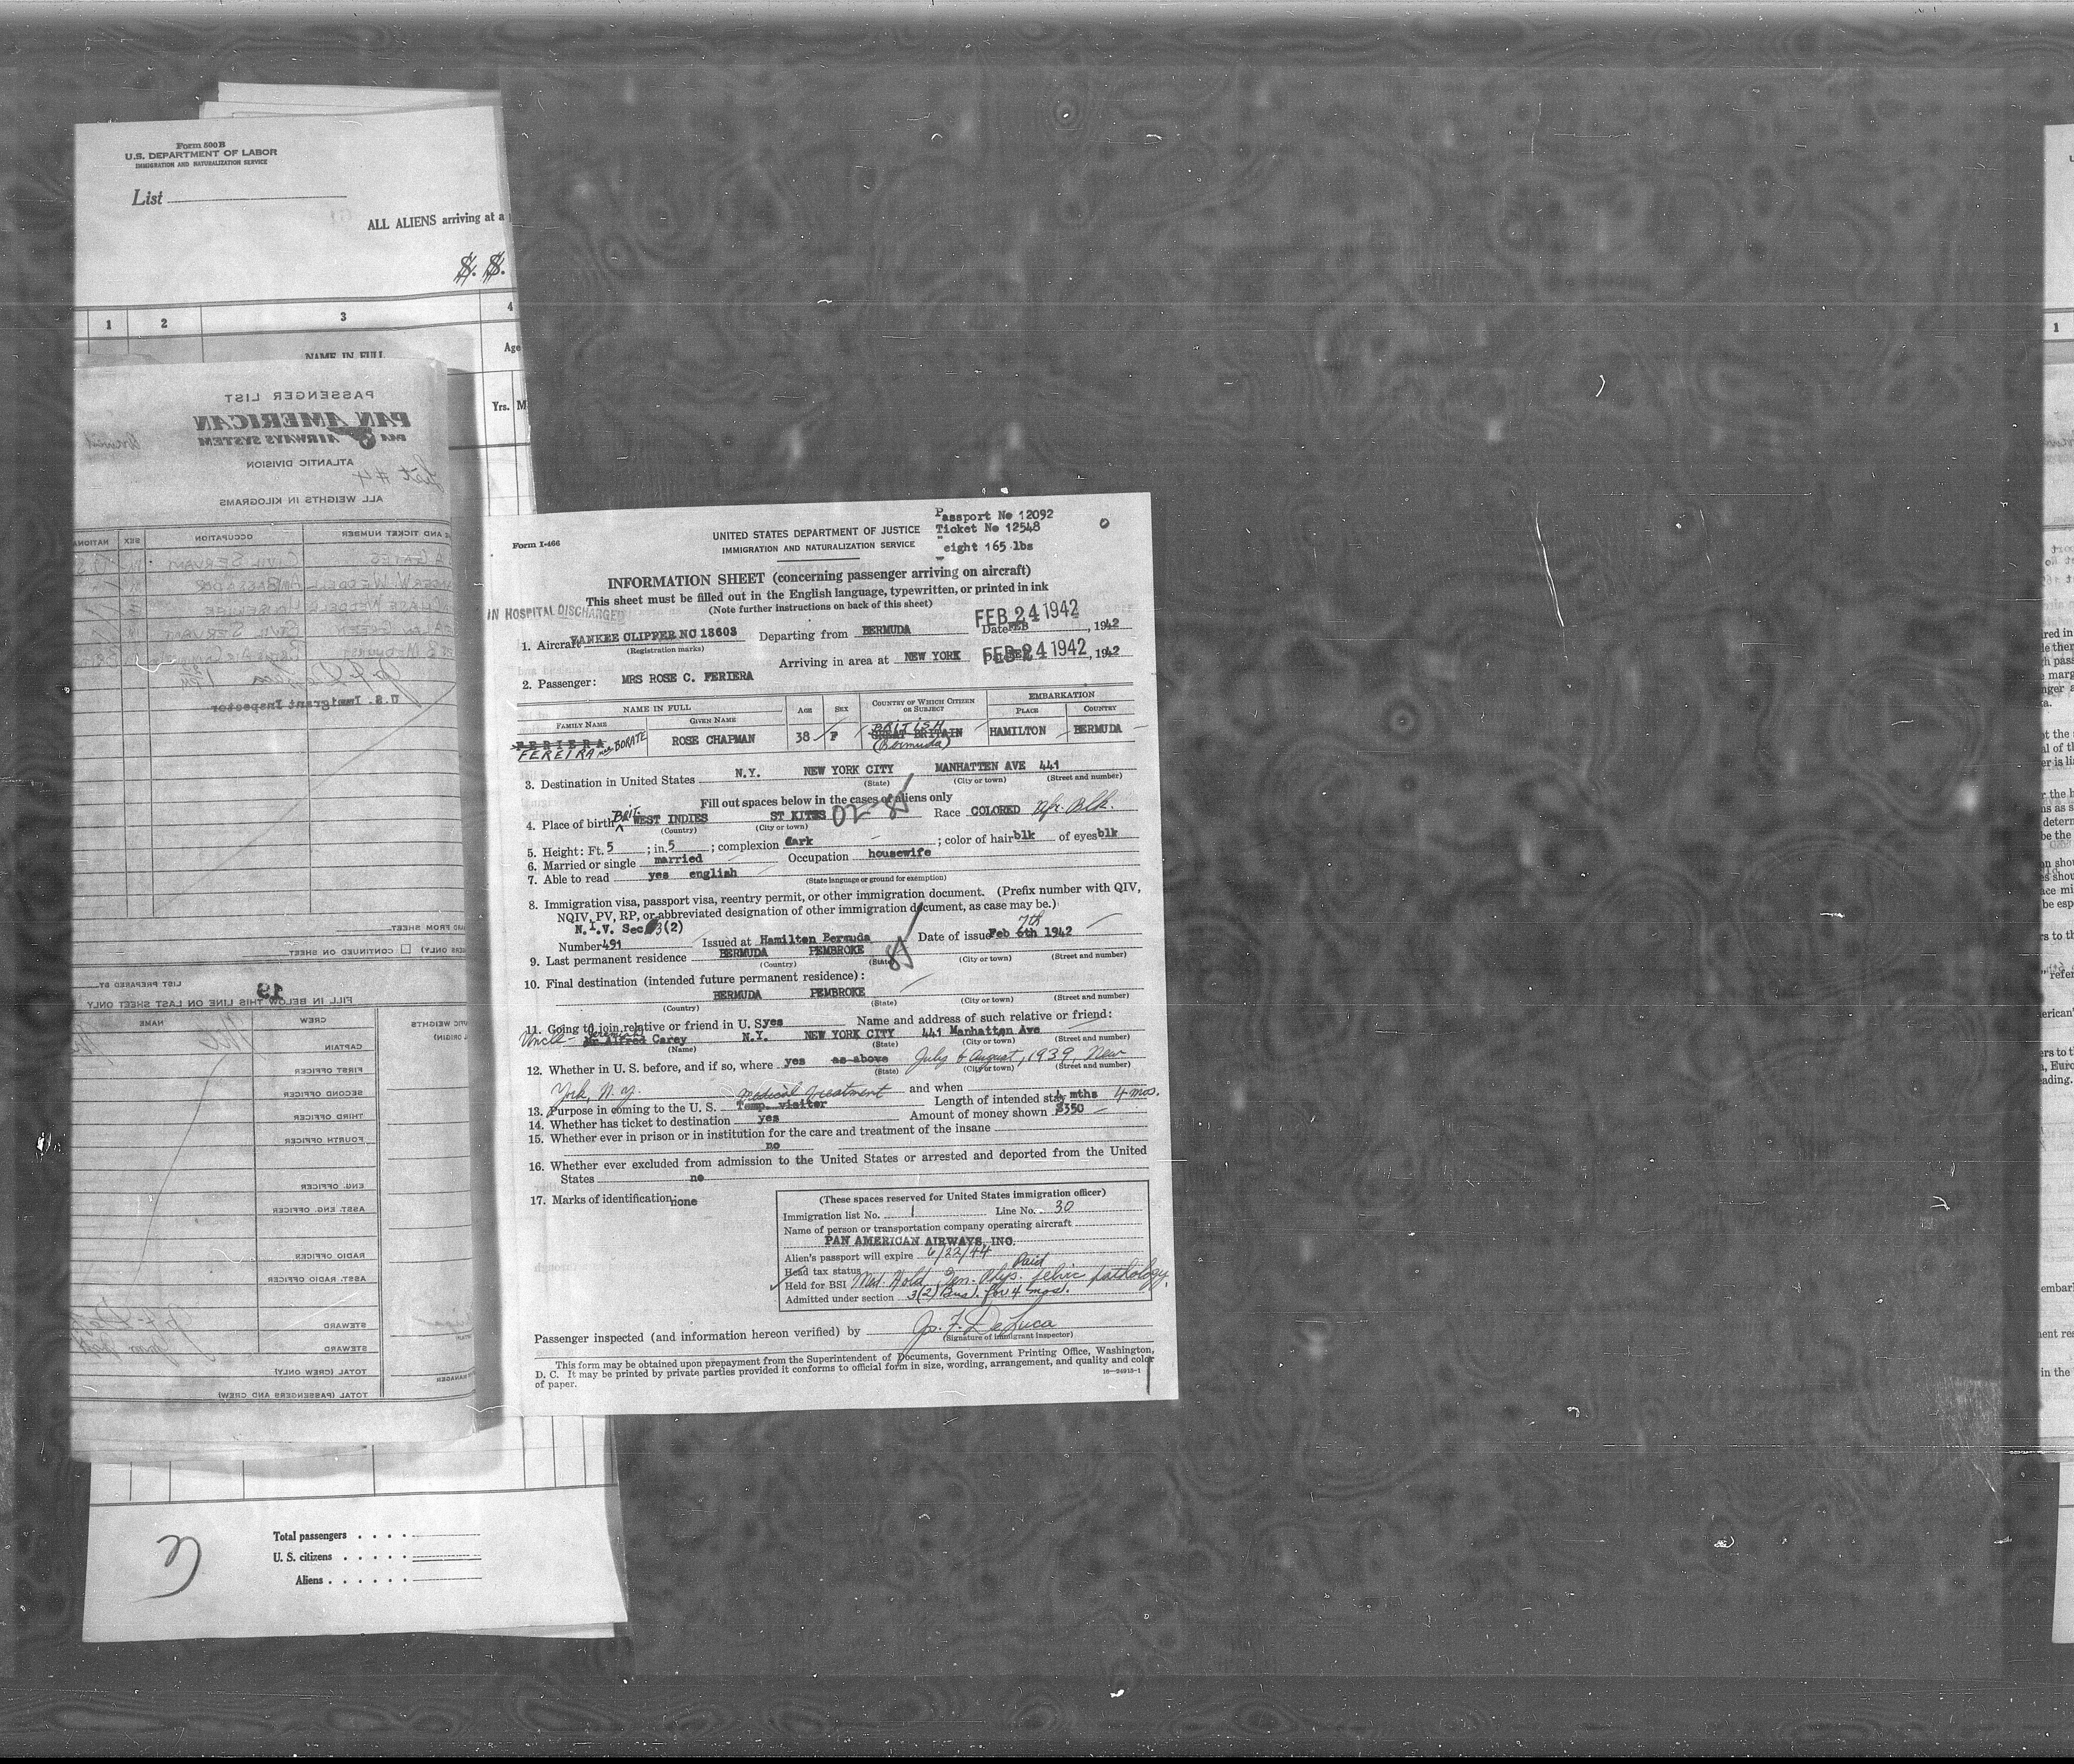 Form 500B
U.S. DEPARTMENT OF LABOR
IMMIGRATION AND NATURALIZATION SERVICE
List
ALL ALIENS arriving at a
S. S.
1 2 3 4
NAME IN FULL
Age
Yrs. M
PASSENGER LIST
PAN AMERICAN
PAA AIRWAYS SYSTEM
ATLANTIC DIVISION
List #4
ALL WEIGHTS IN KILOGRAMS
AND TICKET NUMBER OCCUPATION SEX NATIONA
A GATES CIVIL SERVANT
W WEDDELL AMBASSADOR
CHASE WEDDELL HOUSEWIFE
GREEN CIVIL SERVANT
U.S. Immigrant Inspector
AND FROM SHEET
ERS ONLY) CONTINUED ON SHEET
LIST PREPARED BY
19
FILL IN BELOW THIS LINE ON LAST SHEET ONLY
FIC WEIGHTS CREW NAME
ORIGIN)
CAPTAIN
FIRST OFFICER
SECOND OFFICER
THIRD OFFICER
FOURTH OFFICER
ENG. OFFICER
ASST. ENG. OFFICER
RADIO OFFICER
ASST. RADIO OFFICER
STEWARD
STEWARD
TOTAL (CREW ONLY)
MANAGER
TOTAL (PASSENGERS AND CREW)
Total passengers
U. S. citizens
Aliens
Passport No 12092
Ticket No 12548
Weight 165 lbs
Form I-466
UNITED STATES DEPARTMENT OF JUSTICE
IMMIGRATION AND NATURALIZATION SERVICE
INFORMATION SHEET (concerning passenger arriving on aircraft)
This sheet must be filled out in the English language, typewritten, or printed in ink
(Note further instructions on back of this sheet)
IN HOSPITAL DISCHARGED
FEB 24 1942
1. Aircraft YANKEE CLIPPER NC 18603 Departing from BERMUDA Date FEB , 1942
(Registration marks)
Arriving in area at NEW YORK FEB 24 1942 , 1942
2. Passenger: MRS ROSE C. FERIERA
NAME IN FULL Age Sex Country of Which Citizen or Subject EMBARKATION
Family Name Given Name Place Country
FERIERA FEREIRA nee BORATE ROSE CHAPMAN 38 F GREAT BRITAIN BRITISH (Bermuda) HAMILTON BERMUDA
3. Destination in United States N.Y. NEW YORK CITY MANHATTEN AVE 441
(State) (City or town) (Street and number)
Fill out spaces below in the cases of aliens only
4. Place of birth BRIT. WEST INDIES ST KITTS Race COLORED Afr. Blk.
(Country) (City or town)
5. Height: Ft. 5 ; in. 5 ; complexion dark ; color of hair blk of eyes blk
6. Married or single married Occupation housewife
7. Able to read yes english
(State language or ground for exemption)
8. Immigration visa, passport visa, reentry permit, or other immigration document. (Prefix number with QIV,
NQIV, PV, RP, or abbreviated designation of other immigration document, as case may be.)
N.I.V. Sec 3(2)
Number 491 Issued at Hamilton Bermuda Date of issue Feb 6th 7th 1942
9. Last permanent residence BERMUDA PEMBROKE
(Country) (State) (City or town) (Street and number)
10. Final destination (intended future permanent residence):
BERMUDA PEMBROKE
(Country) (State) (City or town) (Street and number)
11. Going to join relative or friend in U. S. yes Name and address of such relative or friend:
Uncle - Jeremiah Mr Alfred Carey N.Y. NEW YORK CITY 441 Manhatten Ave
(Name) (State) (City or town) (Street and number)
12. Whether in U. S. before, and if so, where yes as above July & August, 1939, New
(State) (City or town) (Street and number)
York, N. Y. and when
Medical treatment
13. Purpose in coming to the U. S. Temp. visitor Length of intended stay 4 mths 4 mos.
14. Whether has ticket to destination yes Amount of money shown $350
15. Whether ever in prison or in institution for the care and treatment of the insane
no
16. Whether ever excluded from admission to the United States or arrested and deported from the United
States no
17. Marks of identification: none
(These spaces reserved for United States immigration officer)
Immigration list No. 1 Line No. 30
Name of person or transportation company operating aircraft
PAN AMERICAN AIRWAYS, INC.
Alien's passport will expire 6/22/44
Head tax status Paid
Held for BSI Med. Hold Gen. Phys. pelvic pathology,
Admitted under section 3(2) Bus. for 4 mos.
Passenger inspected (and information hereon verified) by Jo. F. De Luca
(Signature of immigrant inspector)
This form may be obtained upon prepayment from the Superintendent of Documents, Government Printing Office, Washington,
D. C. It may be printed by private parties provided it conforms to official form in size, wording, arrangement, and quality and color
of paper. 16—24915-1
1